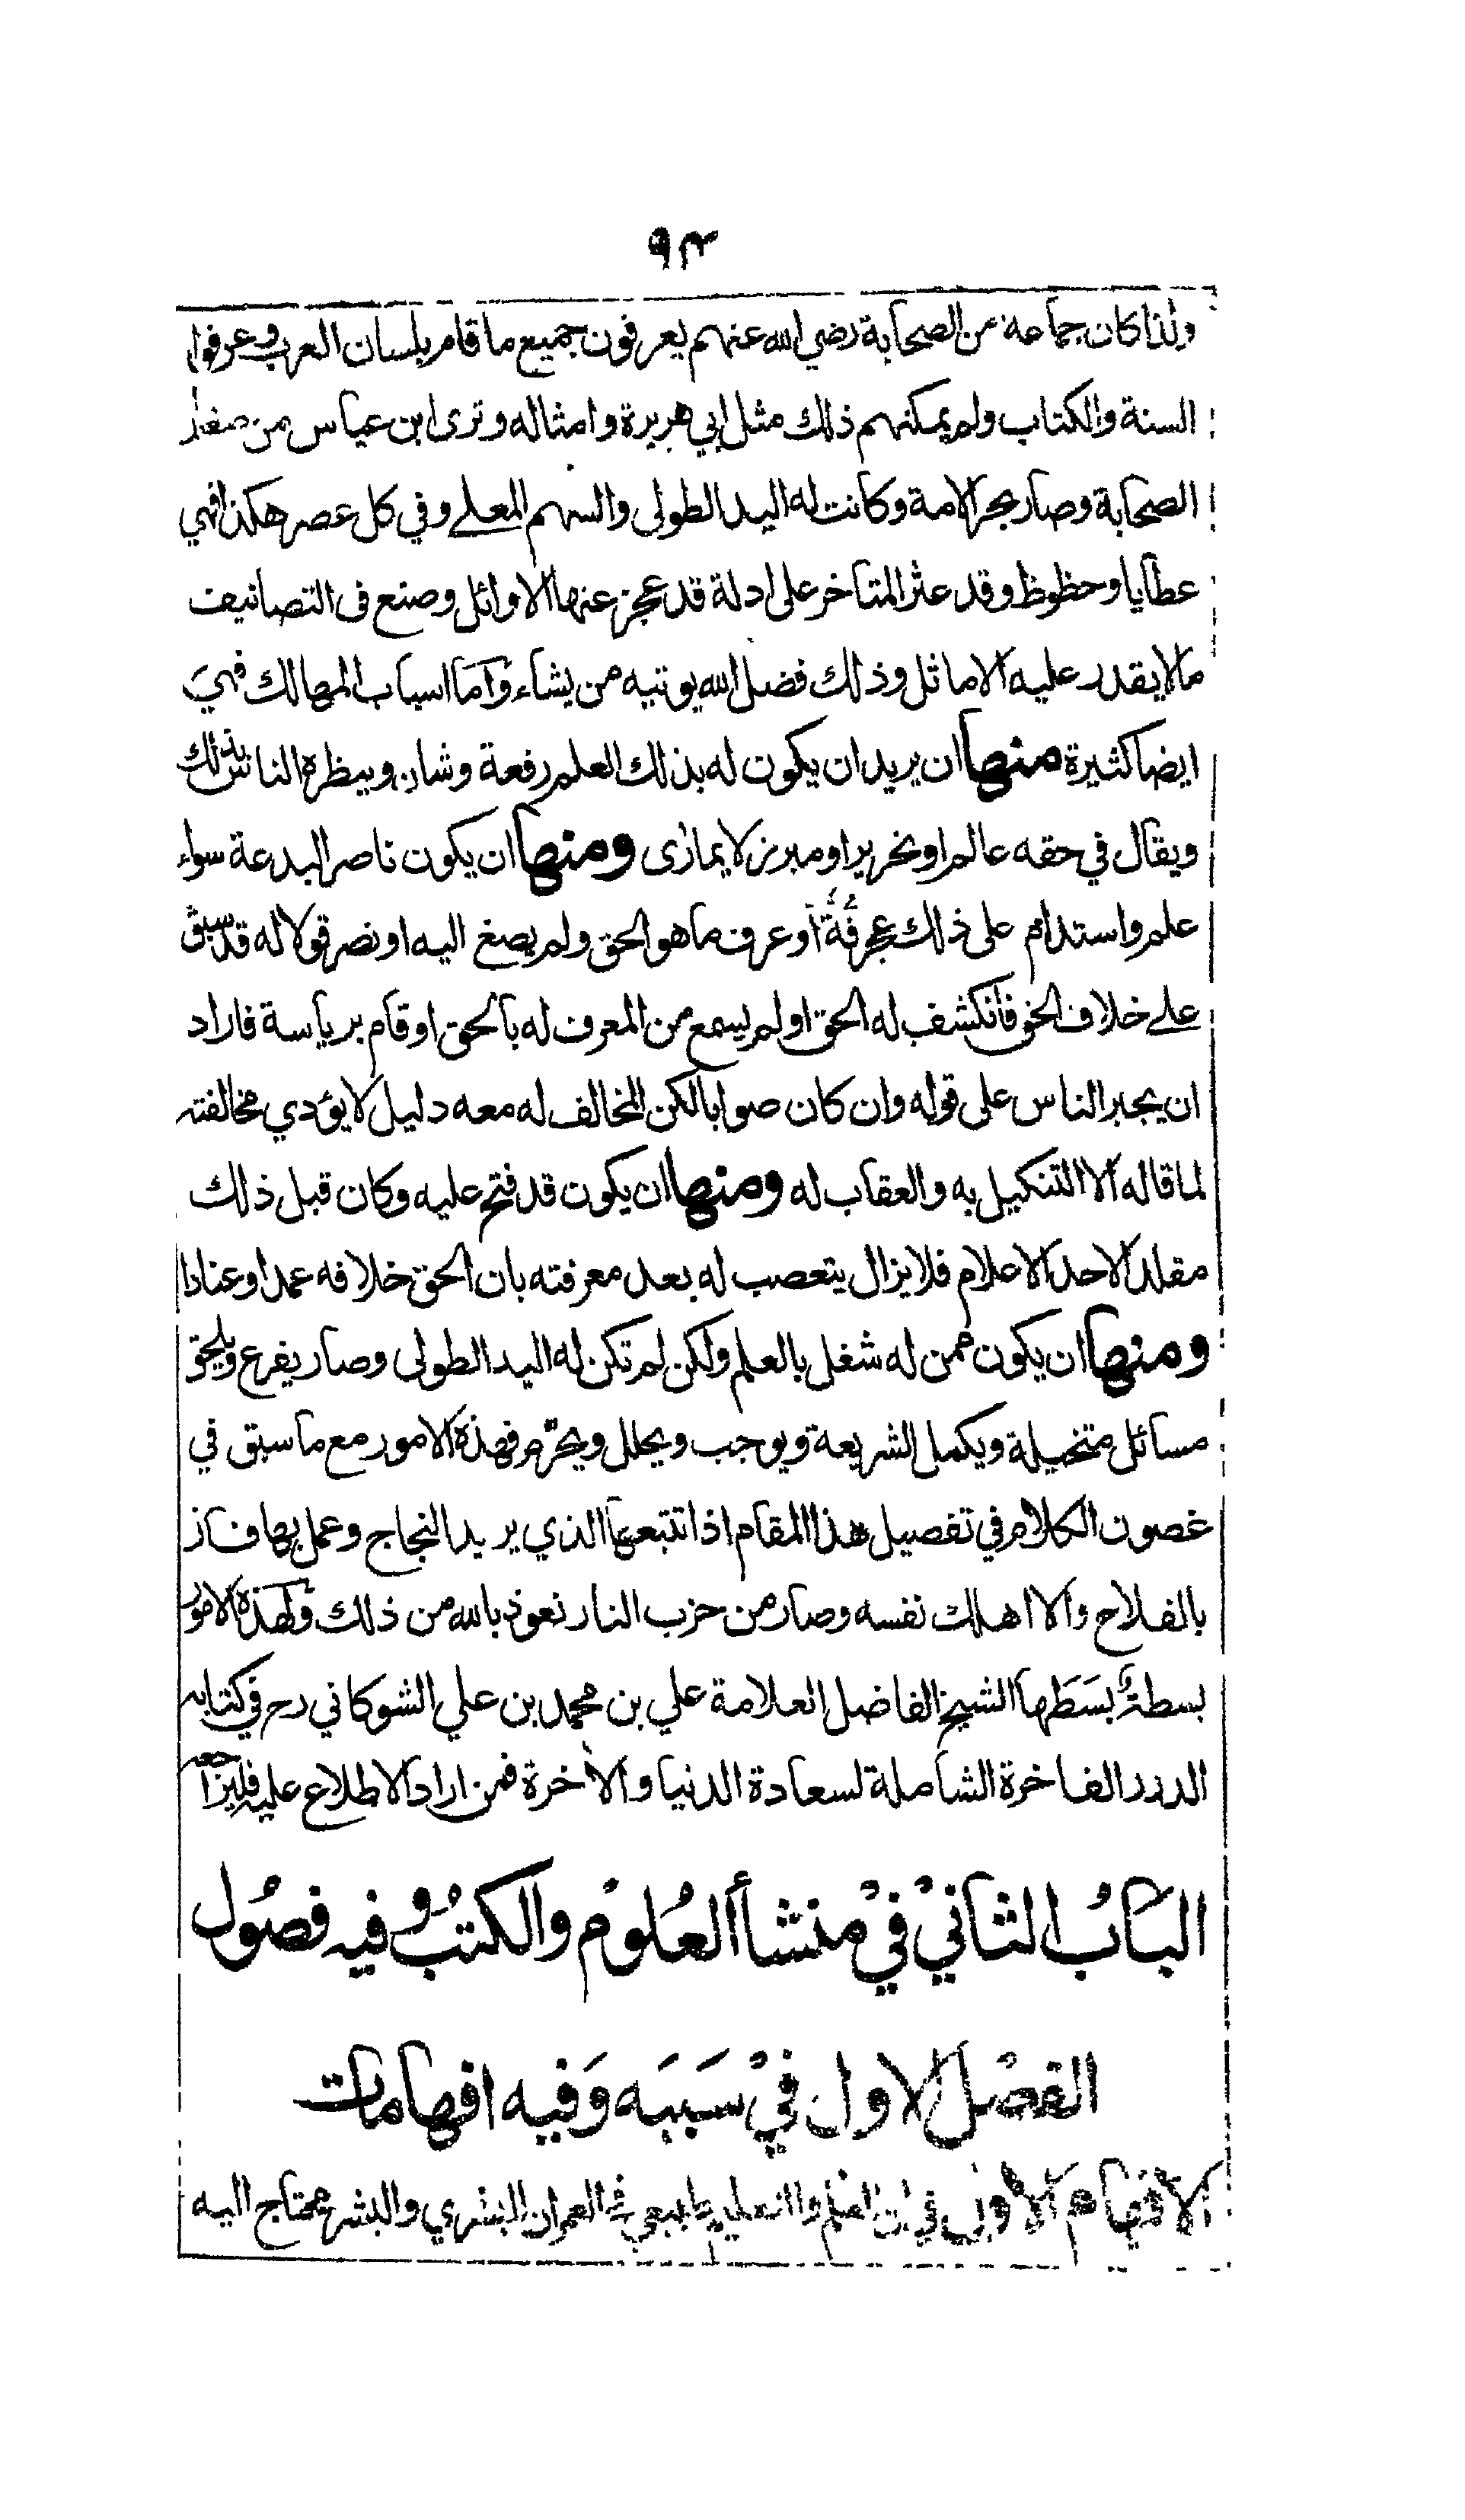 ٩٣
ولذا كان جماعة من الصحابة رضي الله عنهم يعرفون جميع ما قام بلسان العرب وعرفوا
السنة والكتاب ولم يمكنهم ذلك مثل ابي هريرة وامثاله وترى ابن عباس من صغار
الصحابة وصار بحر الامة وكانت له اليد الطولى والسهم المعلے وفي كل عصر هكذا فهي
عطايا وحظوظ وقد عثر المتاخر على ادلة قد عجز عنها الاوائل وصنع فى التصانيف
مالا يقدر عليه الاماثل وذلك فضل الله يوتيه من يشاء وآما اسباب المهالك فهي
ايضا كثيرة منها ان يريد ان يكون له بذلك العلم رفعة وشان وينظره الناس بذلك
ويقال في حقه عالم او نحرير او مبرز لا يمارى ومنها ان يكون ناصر البدعة سواء
علم واستدام على ذلك عجرفة أو عرف ما هو الحق ولم يصغ اليه او نصر قولا له قد سبق
علے خلاف الحق فانكشف له الحق او لم يسمع من المعرف له بالحق او قام برياسة فاراد
ان يجبر الناس على قوله وان كان صوابا لكن المخالف له معه دليل لا يؤدي مخالفته
لما قاله الا التنكيل به والعقاب له ومنها ان يكون قد فتح عليه وكان قبل ذلك
مقلد الاحد الاعلام فلا يزال يتعصب له بعد معرفته بان الحق خلافه عمدا وعنادا
ومنها ان يكون ممن له شغل بالعلم ولكن لم تكن له اليد الطولى وصار يفرع ويلحق
مسائل متخيلة ويكمل الشريعة ويوجب ويحلل ويحرّم فهذه الامور مع ما سبق في
غصون الكلام في تفصيل هذا المقام اذا تتبعها الذي يريد النجاح وعمل بها فاز
بالفلاح والا اهلك نفسه وصار من حزب النار نعوذ بالله من ذلك ولهذه الامور
بسطة بَسَطَها الشيخ الفاضل العلامة علي بن محمد بن علي الشوكاني رح في كتابه
الدرر الفاخرة الشاملة لسعادة الدنيا والآخرة فمن اراد الاطلاع عليه فليراجعه
البَابُ الثانيْ فيْ منشأ العُلوْم والكتُب وفيه فصُول
الفصْل الاول فيْ سَبَبَه وَفيه افهامات
الافهام الاول في ان العلم والتعليم طبيعي في العمران البشري والبشر محتاج اليه